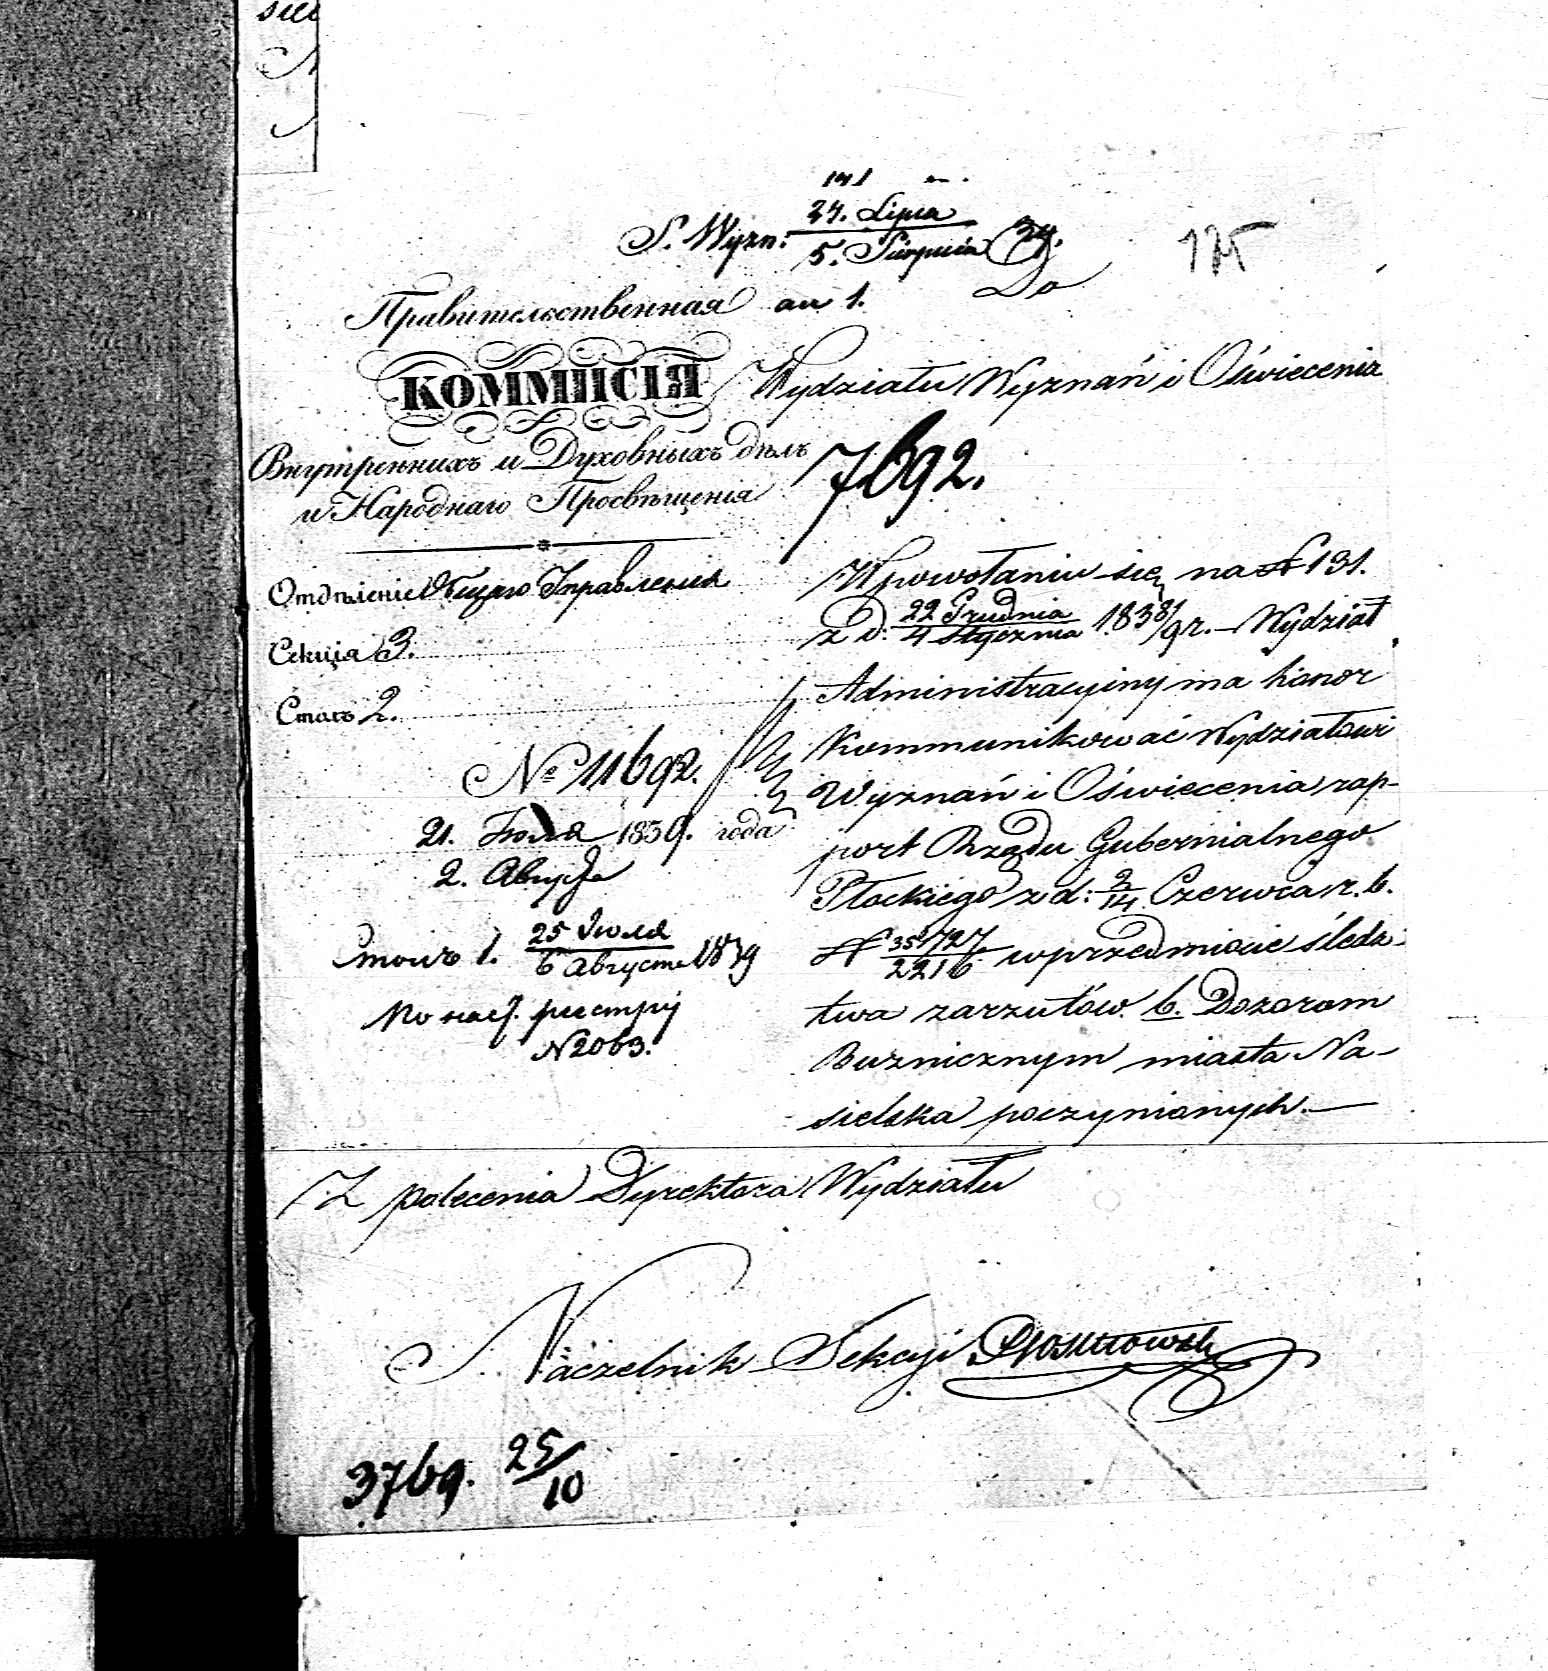 S. Wyzn: 24. Lipca
5. Sierpnia 39.
an 1.
175
Правительственная
КОММИСІЯ
Внутреннихъ и Духовныхъ дѣлъ
и Народнаго Просвѣщенія
Отдѣленіе Общаго Управленія
Секція 3.
Столъ 2.
№ 11692.
21. Іюля 1839. года
2. Августа
Столъ 1. 25 Іюля
6 Августа 1839
По наст. реестру
N 2063.
Do
Wydziału Wyznań i Oświecenia
7692.
W powołaniu się na N 131.
z d. 22 Grudnia
4 Stycznia 1838/9 r. – Wydział
Administracyiny ma honor
Kommunikować Wydziałowi
Wyznań i Oświecenia rap-
port Rządu Gubernialnego
Płockiego z d: 2/14 Czerwca r. b.
N 35727
2216 w przedmiocie śledz-
twa zarzutów b. Dozorom
Buzniczym miasta Na-
sielska poczynionych. –
Z polecenia Dyrektora Wydziału
Naczelnik Sekcyi
3769. 25/10